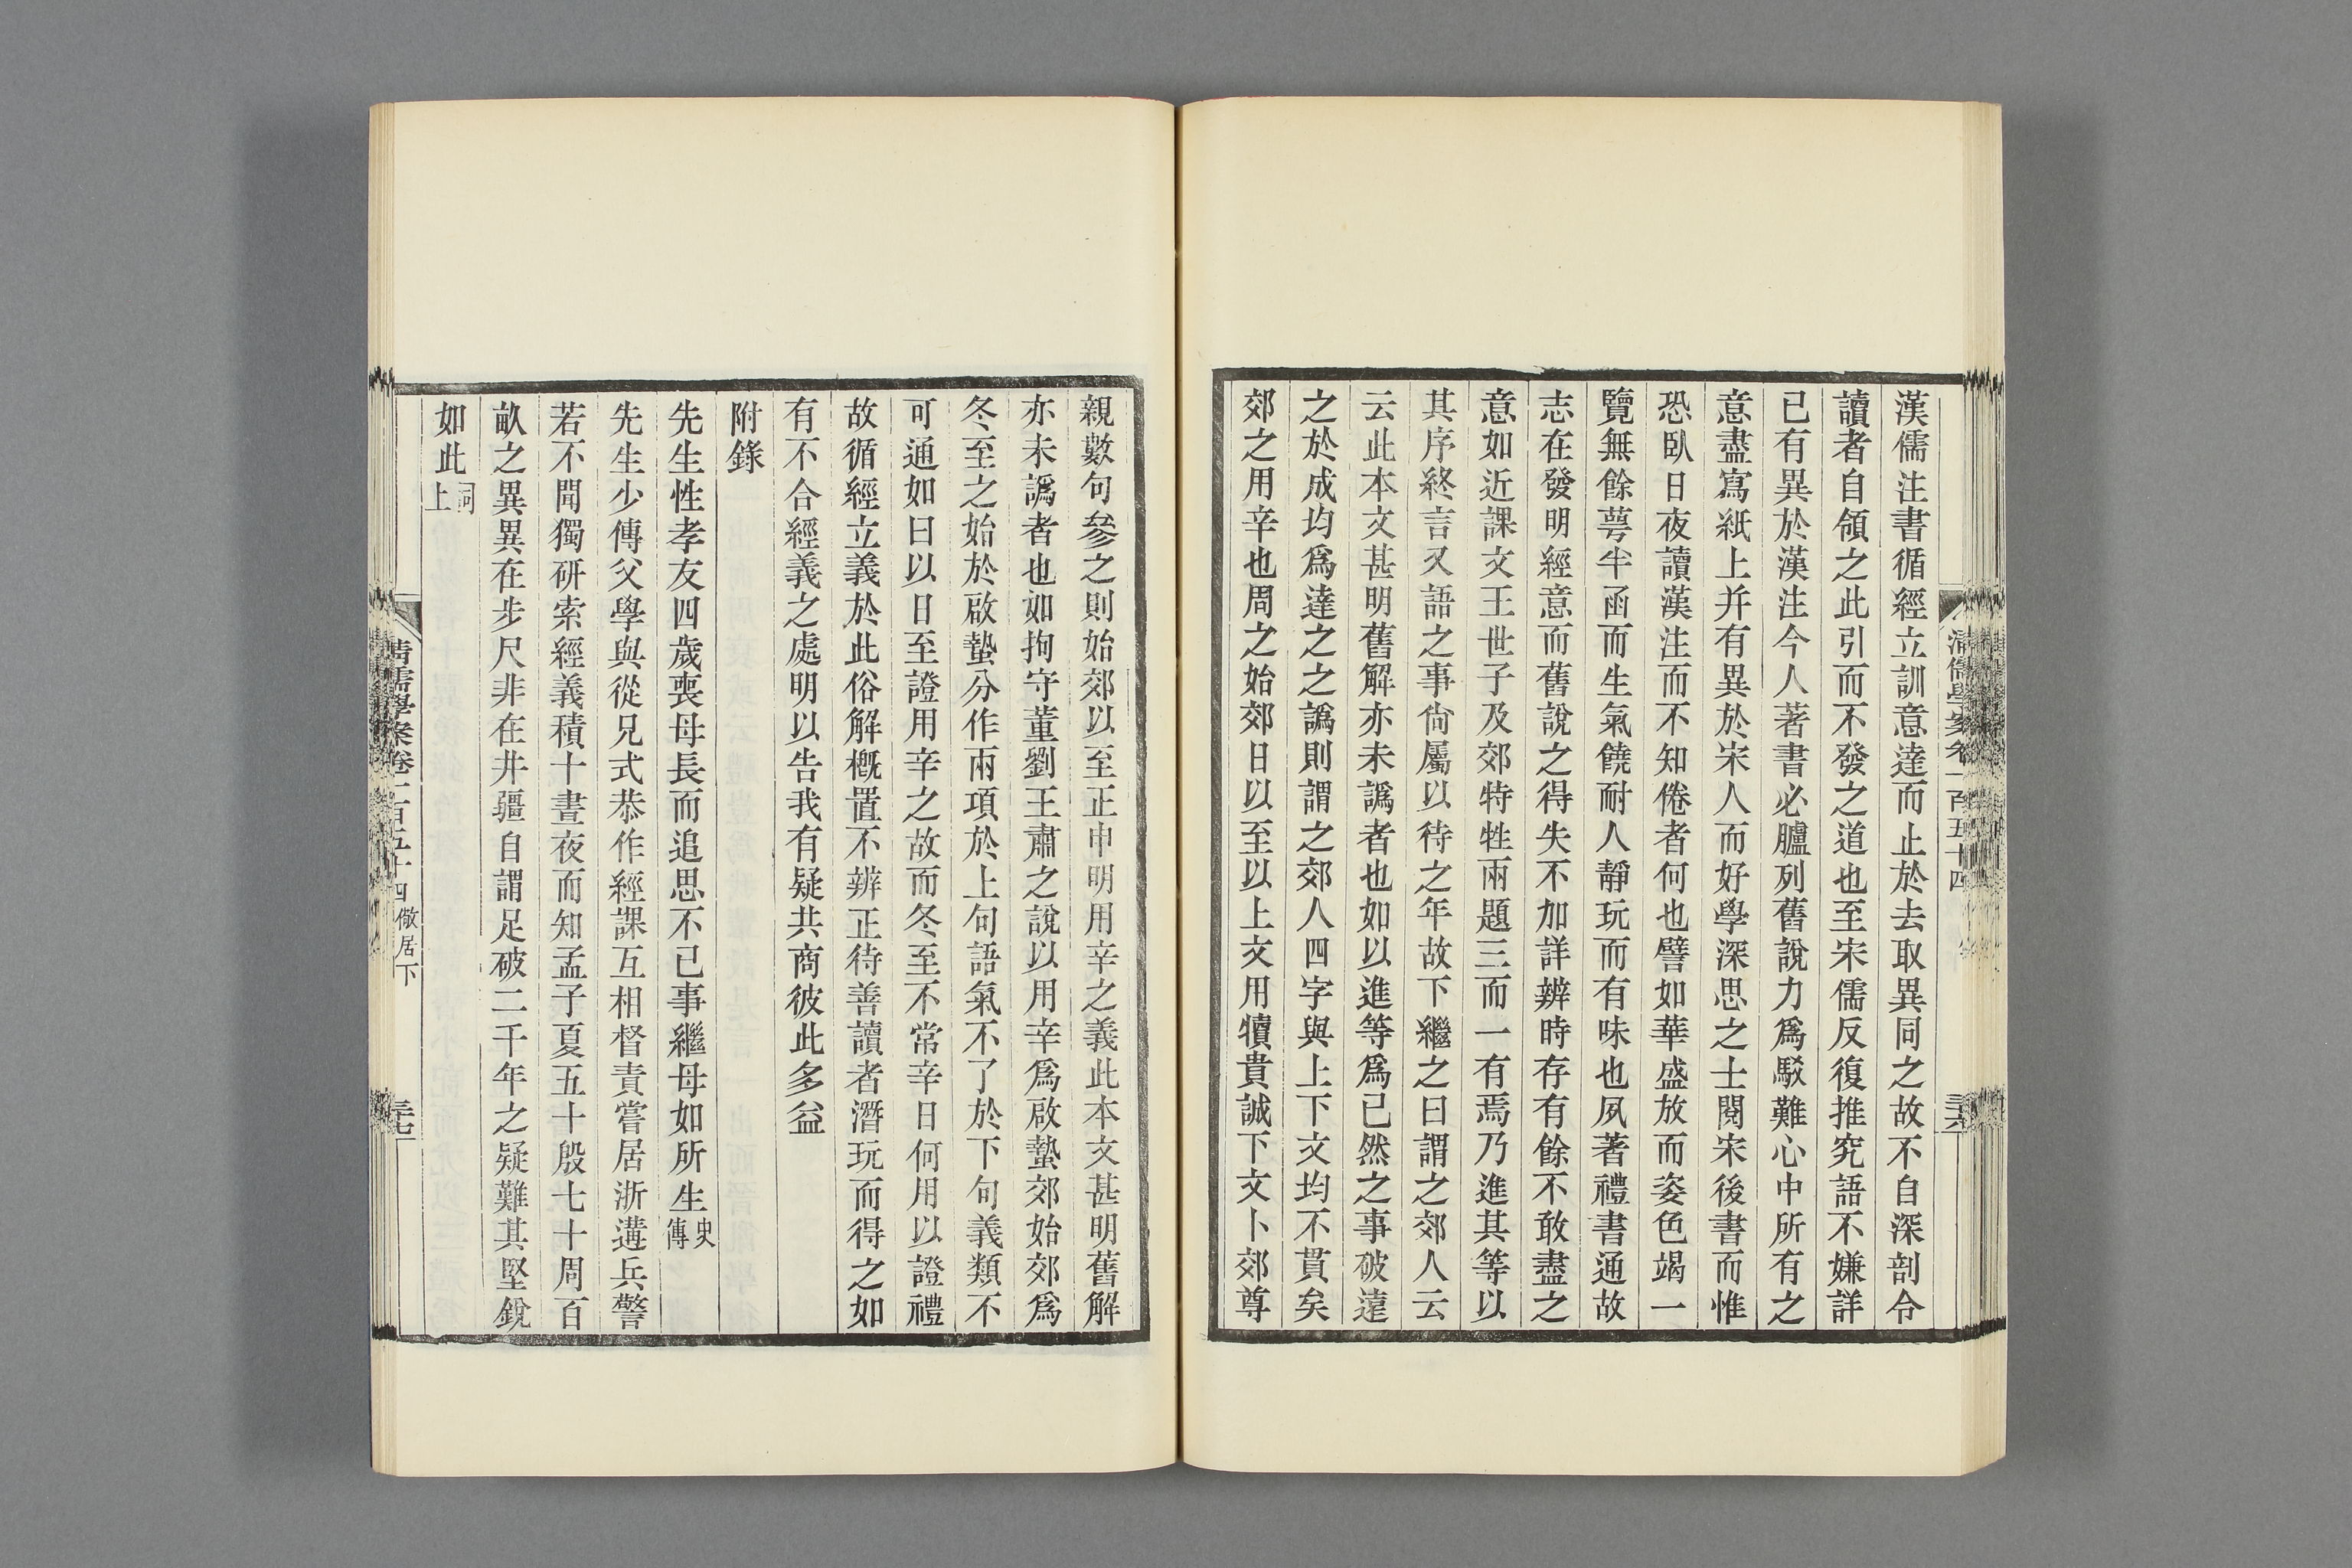 漢儒注書循經立訓意達而止於去取異同之故不自深剖令
讀者自領之此引而不發之道也至宋儒反復推究語不嫌詳
已有異於漢注今人著書必臚列舊說力爲駁難心中所有之
意盡寫紙上幷有異於宋人而好學深思之士閱宋後書而惟
恐臥日夜讀漢注而不知倦者何也譬如華盛放而姿色竭一
覽無餘萼半函而生氣饒耐人靜玩而有味也夙著禮書通故
志在發明經意而舊說之得失不加詳辨時存有餘不敢盡之
意如近課文王世子及郊特牲兩題三而一有焉乃進其等以
其序終言又語之事尙屬以待之年故下繼之曰謂之郊人云
云此本文甚明舊解亦未譌者也如以進等爲已然之事破遠
之於成均爲達之之譌則謂之郊人四字與上下文均不貫矣
郊之用辛也周之始郊日以至以上文用犢貴誠下文卜郊尊
清儒學案卷一百五十四
三六
親數句參之則始郊以至正申明用辛之義此本文甚明舊解
亦未譌者也如拘守董劉王肅之說以用辛爲啟蟄郊始郊爲
冬至之始於啟蟄分作兩項於上句語氣不了於下句義類不
可通如曰以日至證用辛之故而冬至不常辛日何用以證禮
故循經立義於此俗解概置不辨正待善讀者潛玩而得之如
有不合經義之處明以告我有疑共商彼此多益
附錄
先生性孝友四歲喪母長而追思不已事繼母如所生史傳
先生少傳父學與從兄式恭作經課互相督責嘗居浙遘兵警
若不聞獨研索經義積十晝夜而知孟子夏五十殷七十周百
畝之異異在步尺非在井疆自謂足破二千年之疑難其堅銳
如此同上
清儒學案卷一百五十四 儆居下
三七